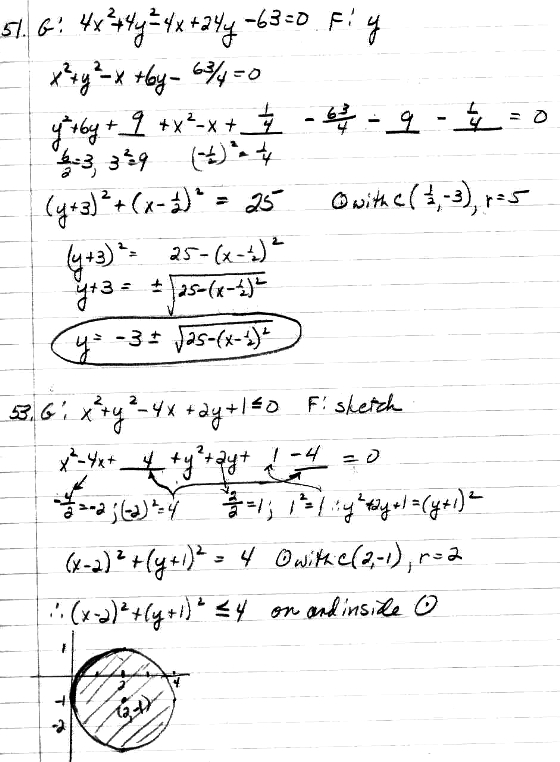 51. G: 4x²+4y²-4x+24y-63=0 F: y
x²+y²-x+6y-63/4=0
y²+6y+ 9 +x²-x+ 1/4 - 63/4 - 9 - 1/4 = 0
6/2=3, 3²=9 (-1/2)²=1/4
(y+3)²+(x-1/2)² = 25 ⊙ with C(1/2,-3), r=5
(y+3)² = 25-(x-1/2)²
y+3 = ±√(25-(x-1/2)²)
y= -3 ± √(25-(x-1/2)²)
53. G: x²+y²-4x+2y+1≤0 F: sketch
x²-4x+ 4 +y²+2y+ 1 -4 = 0
-4/2=-2; (-2)²=4 2/2=1; 1²=1 ∴y²+2y+1=(y+1)²
(x-2)²+(y+1)² = 4 ⊙ with C(2,-1), r=2
∴ (x-2)²+(y+1)² ≤4 on and inside ⊙
1
2 4
-1
(2,-1)
-2